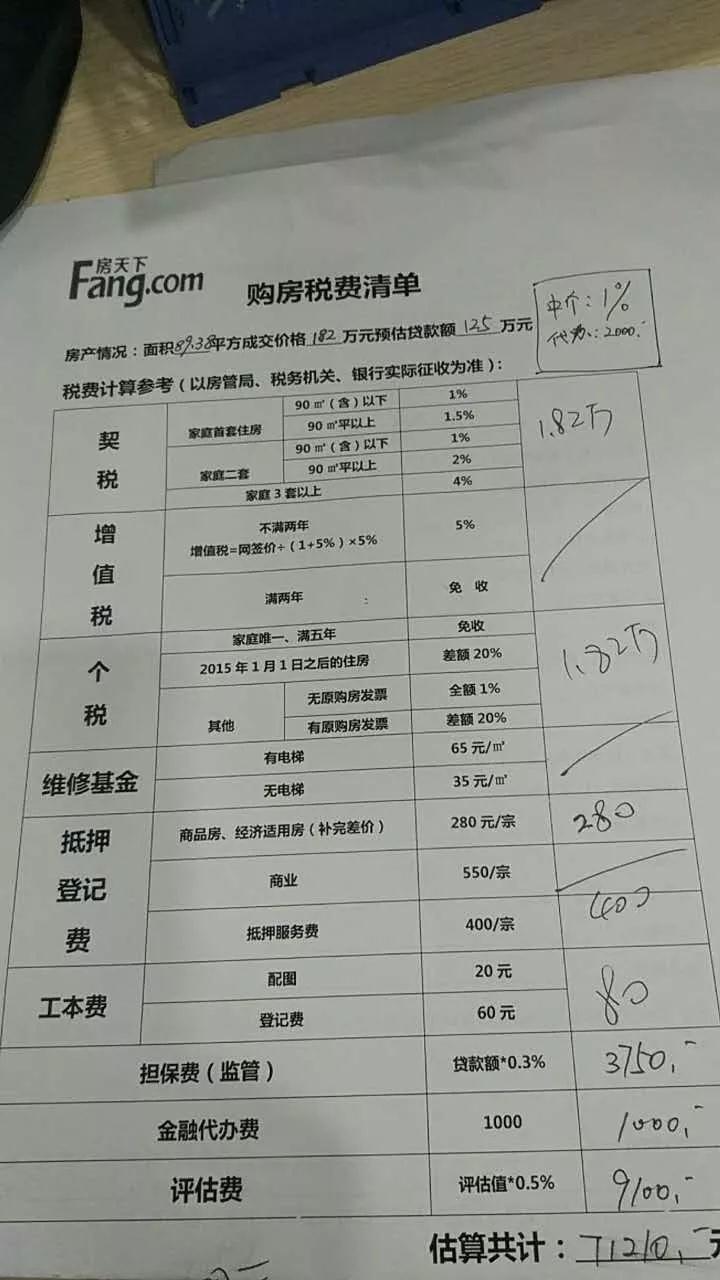 房天下
Fang.com
购房税费清单
中介：1%
代办：2000.-
房产情况：面积89.38平方成交价格182万元预估贷款额125万元
税费计算参考（以房管局、税务机关、银行实际征收为准）：
契税 家庭首套住房 90㎡（含）以下 1% 1.82万
90㎡平以上 1.5%
家庭二套 90㎡（含）以下 1%
90㎡平以上 2%
家庭3套以上 4%
增值税 不满两年 5%
增值税=网签价÷（1+5%）×5%
满两年 免 收
个税 家庭唯一、满五年 免收 1.82万
2015年1月1日之后的住房 差额20%
其他 无原购房发票 全额1%
有原购房发票 差额20%
维修基金 有电梯 65元/㎡
无电梯 35元/㎡
抵押登记费 商品房、经济适用房（补完差价） 280元/宗 280
商业 550/宗
抵押服务费 400/宗 400
工本费 配图 20元 80
登记费 60元
担保费（监管） 贷款额*0.3% 3750.-
金融代办费 1000 1000.-
评估费 评估值*0.5% 9100.-
估算共计：71210.-元